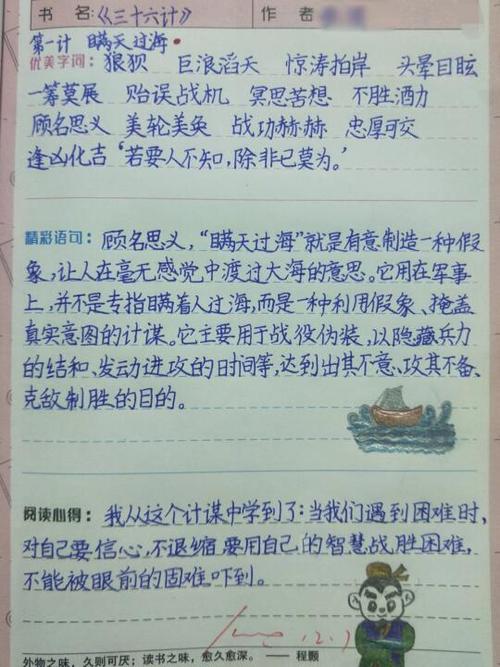 书 名:《三十六计》 作 者
第一计 瞒天过海
优美字词: 狼狈 巨浪滔天 惊涛拍岸 头晕目眩
一筹莫展 贻误战机 冥思苦想 不胜酒力
顾名思义 美轮美奂 战功赫赫 忠厚可交
逢凶化吉 “若要人不知,除非己莫为。”
精彩语句: 顾名思义,“瞒天过海”就是有意制造一种假
象,让人在毫无感觉中渡过大海的意思。它用在军事
上,并不是专指瞒着人过海,而是一种利用假象、掩盖
真实意图的计谋。它主要用于战役伪装,以隐藏兵力
的结和、发动进攻的时间等,达到出其不意、攻其不备、
克敌制胜的目的。
阅读心得: 我从这个计谋中学到了:当我们遇到困难时,
对自己要信心,不退缩要用自己的智慧战胜困难,
不能被眼前的困难吓到。
12.7
外物之味,久则可厌;读书之味,愈久愈深。 —— 程颢